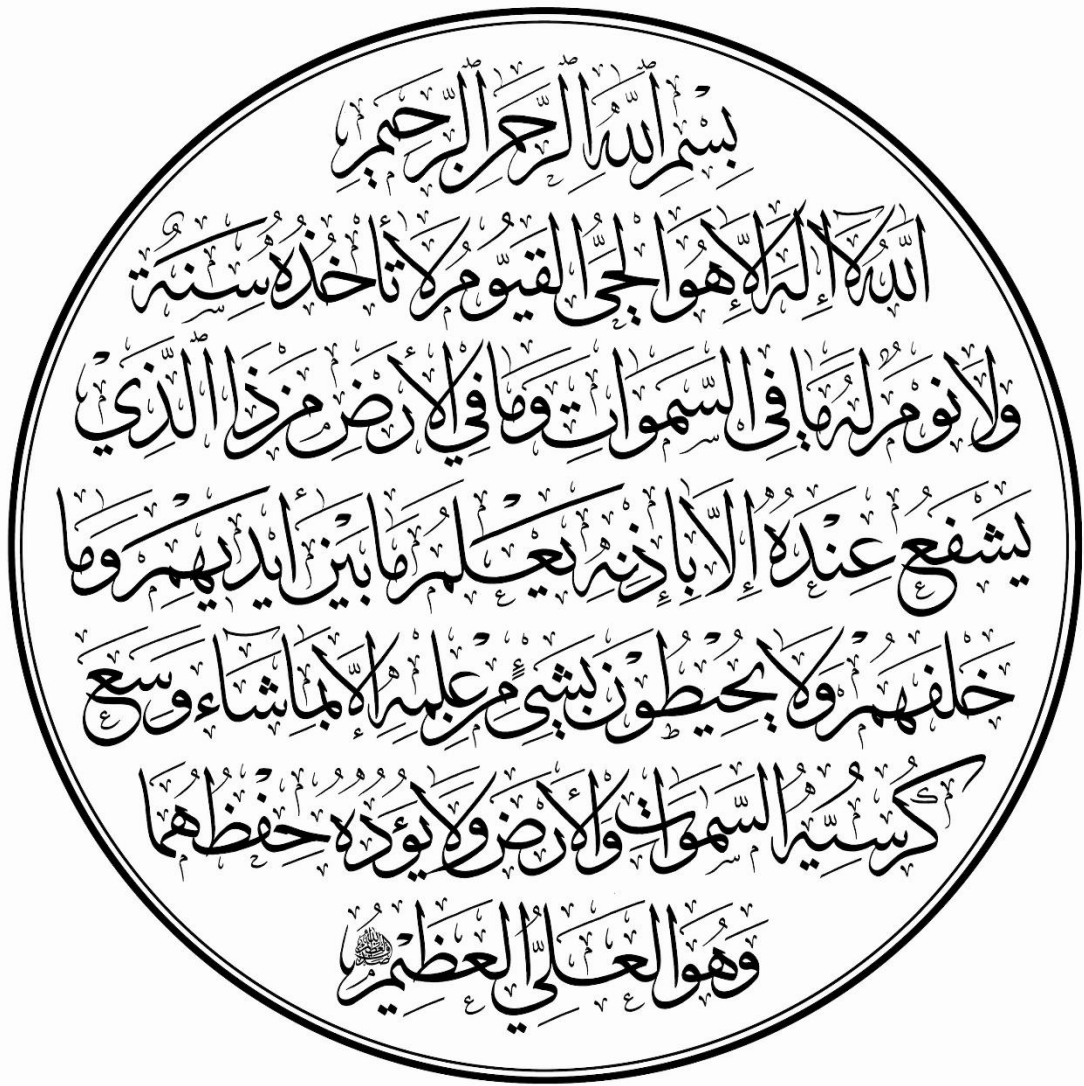 بِسْمِ اللَّهِ الرَّحْمَنِ الرَّحِيمِ
اللَّهُ لَا إِلَهَ إِلَّا هُوَ الْحَيُّ الْقَيُّومُ لَا تَأْخُذُهُ سِنَةٌ
وَلَا نَوْمٌ لَهُ مَا فِي السَّمَوَاتِ وَمَا فِي الْأَرْضِ مَنْ ذَا الَّذِي
يَشْفَعُ عِنْدَهُ إِلَّا بِإِذْنِهِ يَعْلَمُ مَا بَيْنَ أَيْدِيهِمْ وَمَا
خَلْفَهُمْ وَلَا يُحِيطُونَ بِشَيْءٍ مِنْ عِلْمِهِ إِلَّا بِمَا شَاءَ وَسِعَ
كُرْسِيُّهُ السَّمَوَاتِ وَالْأَرْضَ وَلَا يَؤُدُهُ حِفْظُهُمَا
وَهُوَ الْعَلِيُّ الْعَظِيمُ